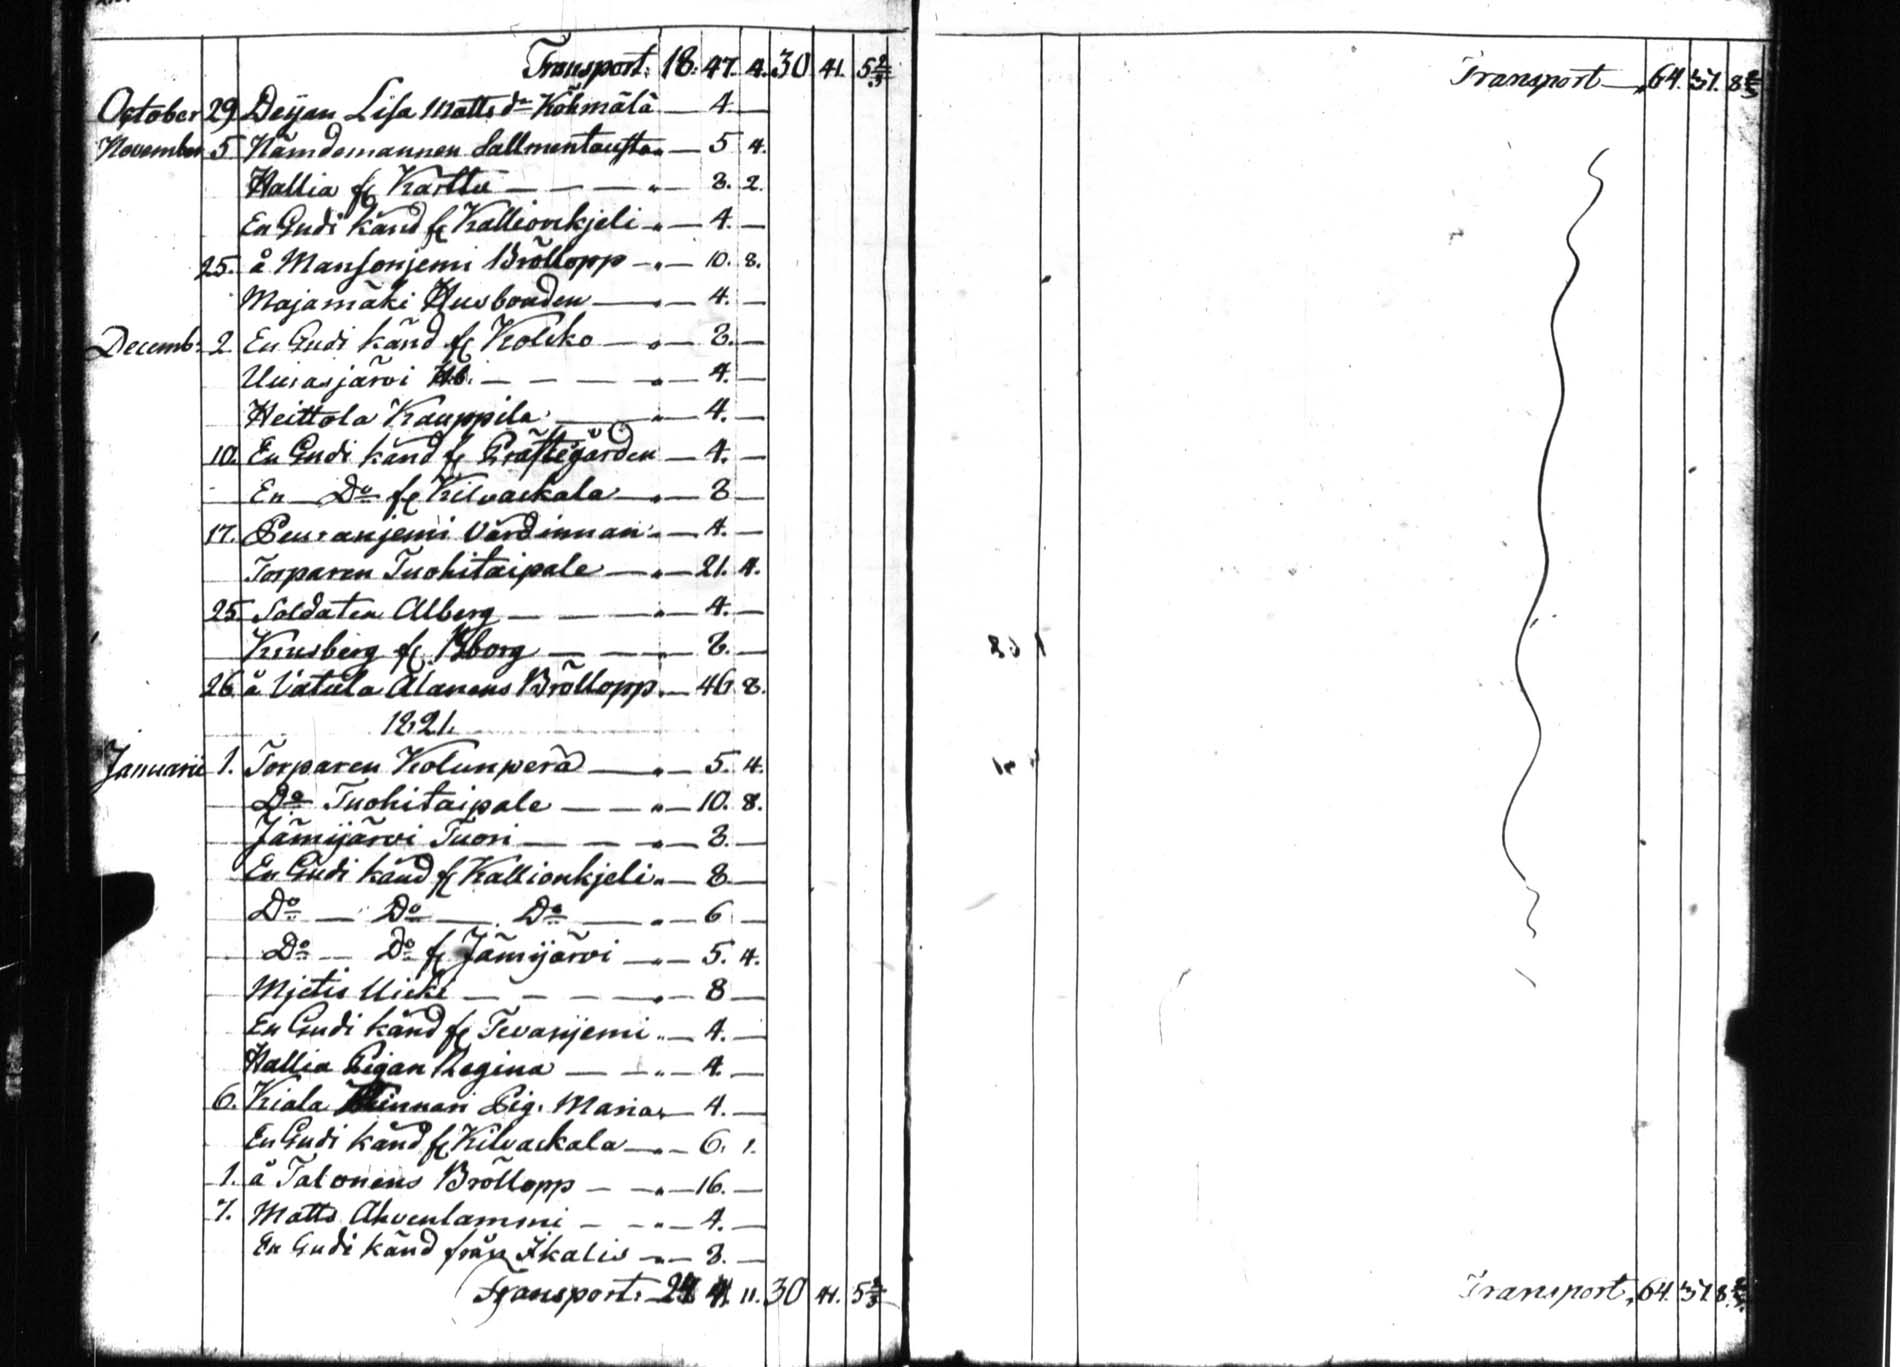 Transport. 18. 47. 4. 30 41. 5 2/3
October 29 Deijan Lisa Mattsdr Köhmälä — 4. —
November 5 Nämdemannen Sallmentausta — 5 4.
Hallia fr Karttu — — — " — 3. 2.
En Gudi känd fr Kallionkjeli " — 4. —
25. å Mansonjemi Bröllopp — " — 10. 8.
Majamäki Husbonden — " — 4. —
Decemb. 2 En Gudi känd fr Kolcko — " — 3. —
Uurasjärvi Hb. — — — " — 4. —
Heittola Kauppila — " — 4. —
10. En Gudi känd fr Prästegården — 4. —
En Do fr Kilvackala — " — 3 —
17. Peuranjemi Värdinnan " — 4. —
Torparen Tuohitaipale — " — 21. 4.
25. Soldaten Alberg — — — " — 4. —
Krusberg fr Bborg — — " — 3. —
26 å Vatula Alanens Bröllopp " — 46 8.
1821.
Januarii 1. Torparen Kolunperä — " — 5. 4.
Do Tuohitaipale — — " — 10. 8.
Jämijärvi Tuori — — — " — 3. —
En Gudi känd fr Kallionkjeli " — 8 —
Do — Do — Do — " — 6 —
Do — Do fr Jämijärvi — " — 5. 4.
Mjetis — — — " — 8 —
En Gudi känd fr Tevanjemi " — 4. —
Hallia Pigan Regina — — " — 4. —
6. Kiala Pig. Maria " — 4. —
En Gudi känd fr Kilvackala — " — 6. 1.
1. å Talonens Bröllopp — — " — 16. —
7. Matts Ahvenlammi — — " — 4. —
En Gudi känd från Ikalis — " — 3. —
Transport. 11. 30 41. 5 2/3
Transport — " 64. 37. 8 2/3
Transport " 64. 37. 8 2/3